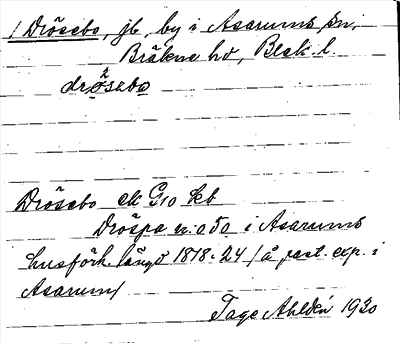 / Drösebo, jb, by i Asarums sn,
Bräkne hd, Blek. l.
drözebo
Drösebo ek G10 kb
Dröspa n:o 50 i Asarums
husförh. längd 1818-24 /å past. exp. i
Asarum/
Tage Ahldén 1930